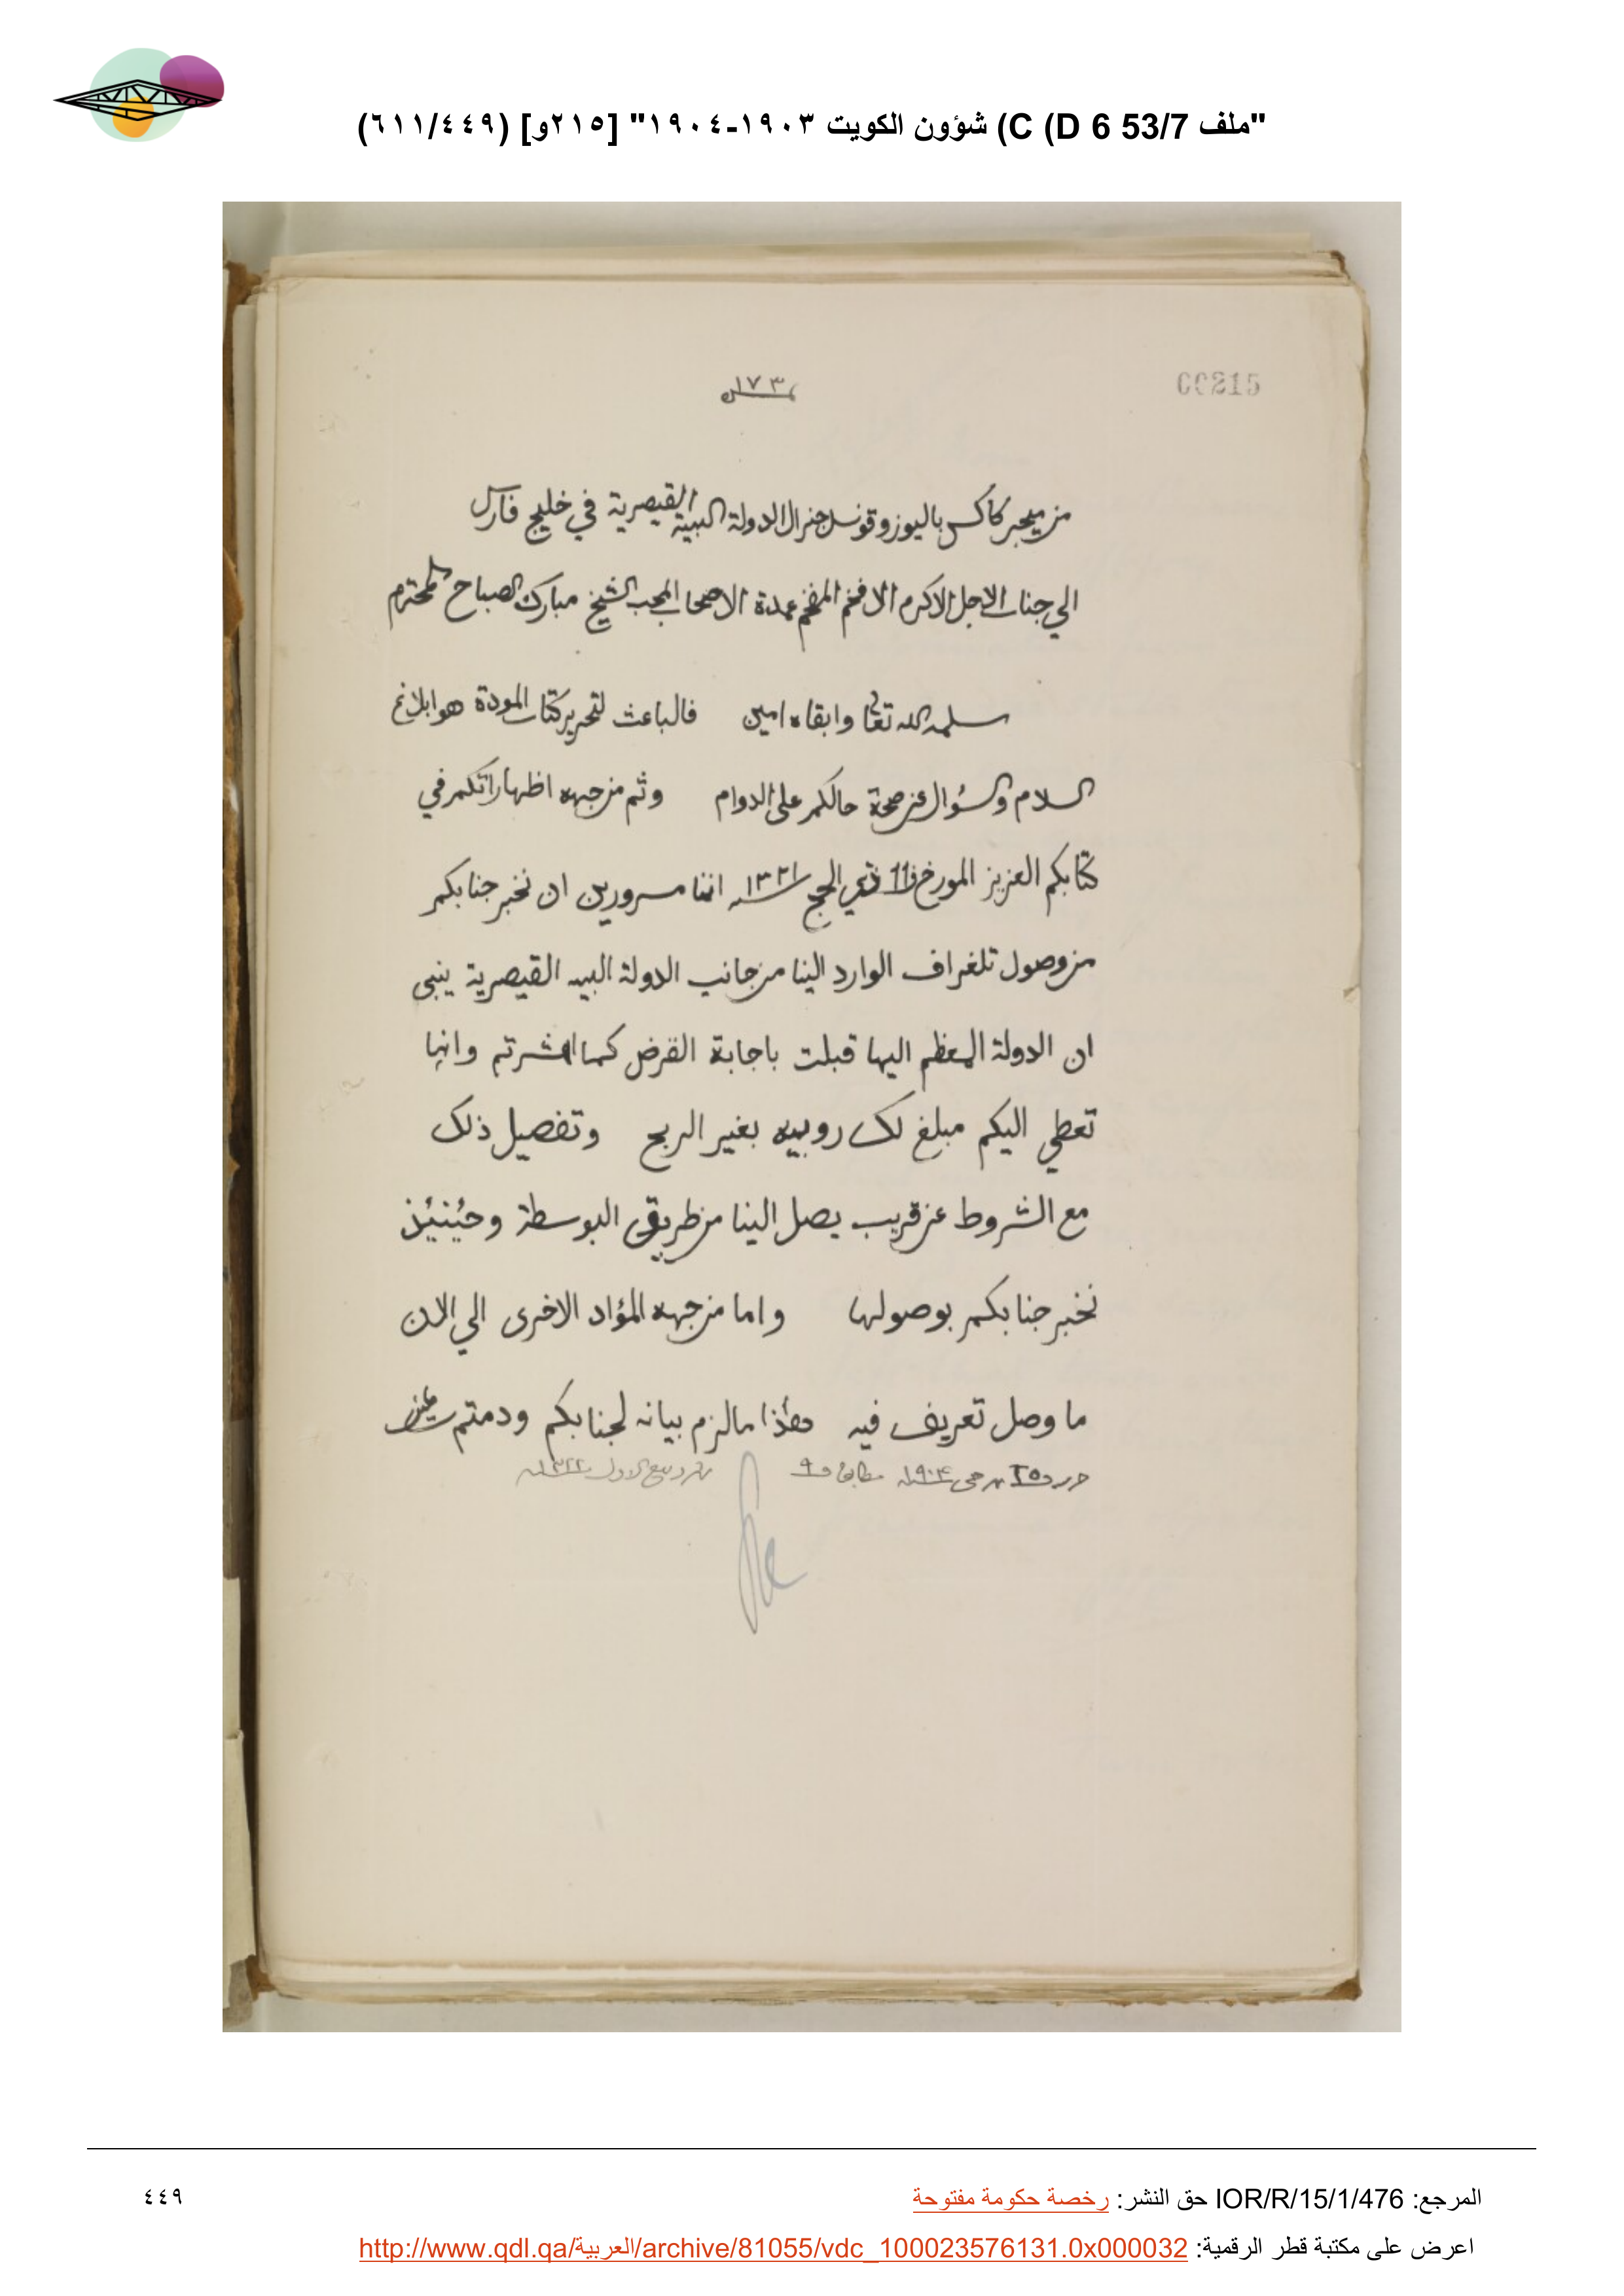 "ملف 53/7 C (D 6) شؤون الكويت ١٩٠٣-١٩٠٤" [٢١٥و] (٦١١/٤٤٩)
00215
١٧٣
من ميجر كاكس باليوز وقونسل جنرال الدولة البهية القيصرية في خليج فارس
الي جناب الاجل الاكرم الافخم المفخم عمدة الاصحاب المحب الشيخ مبارك الصباح المحترم
سلمه الله تعالى وابقاه امين فالباعث لتحرير كتاب المودة هو ابلاغ
السلام والسؤال عن صحة حالكم على الدوام وثم من جهه اظهاراتكم في
كتابكم العزيز المورخ في 11 ذي الحج سنه ١٣٢١ اننا مسرورين ان نخبر جنابكم
من وصول تلغراف الوارد الينا من جانب الدولة البهيه القيصرية ينبى
ان الدولة المعظم اليها قبلت باجابة القرض كما اشرتم وانها
تعطي اليكم مبلغ لك روبيه بغير الربح وتفصيل ذلك
مع الشروط عن قريب يصل الينا من طريق البوسطة وحينئذ
نخبر جنابكم بوصولها واما من جهه المؤاد الاخرى الي الان
ما وصل تعريف فيه هذا ما لزم بيانه لجنابكم ودمتم سالمين
حرر ٢٥ مي سنه ١٩٠٤ مطابق ٩ شهر ربيع الاول سنه ١٣٢٢
المرجع: IOR/R/15/1/476 حق النشر: رخصة حكومة مفتوحة
٤٤٩
اعرض على مكتبة قطر الرقمية: http://www.qdl.qa/العربية/archive/81055/vdc_100023576131.0x000032